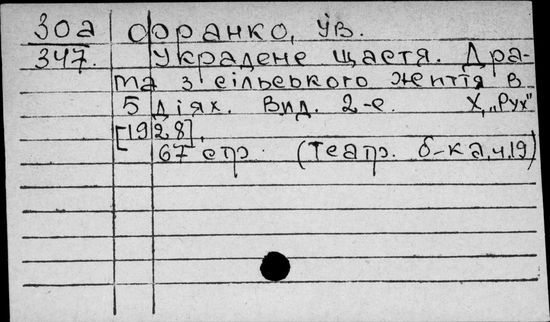 30а Франко, Ів.
347. Украдене щастя. Дра-
ма з сільського життя в
5 діях. Вид. 2-е. Х, „Рух"
[1928].
67 стр. (Театр. б-ка, ч.19)